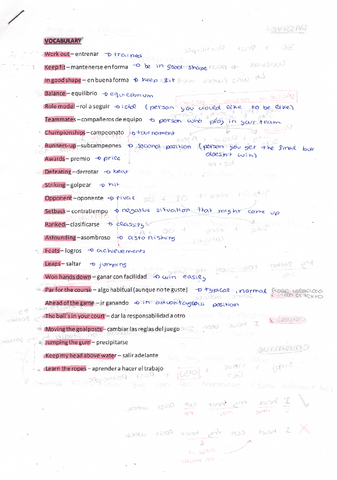 VOCABULARY
Work out – entrenar → trained
Keep fit – mantenerse en forma → be in good shape
In good shape – en buena forma → keep fit
Balance – equilibrio →
Role model – rol a seguir → idol (person you would like to be like)
Teammates – compañeros de equipo → person who play in your team
Championships – campeonato → tournament
Runners-up – subcampeones → second position (person you get the final but doesn't win)
Awards – premio → price
Defeating – derrotar → beat
Striking – golpear → hit
Opponent – oponente → rival
Setback – contratiempo → negative situation that might come up
Ranked – clasificarse → classify
Astounding – asombroso → astonishing
Feats – logros → achievements
Leaps – saltar → jumping
Won hands down – ganar con facilidad → win easily
Par for the course – algo habitual (aunque no te guste) → typical, normal
Ahead of the game – ir ganando → in advantageous position
The ball's in your court – dar la responsabilidad a otro
Moving the goalposts – cambiar las reglas del juego
Jumping the gun – precipitarse
Keep my head above water – salir adelante
Learn the ropes – aprender a hacer el trabajo